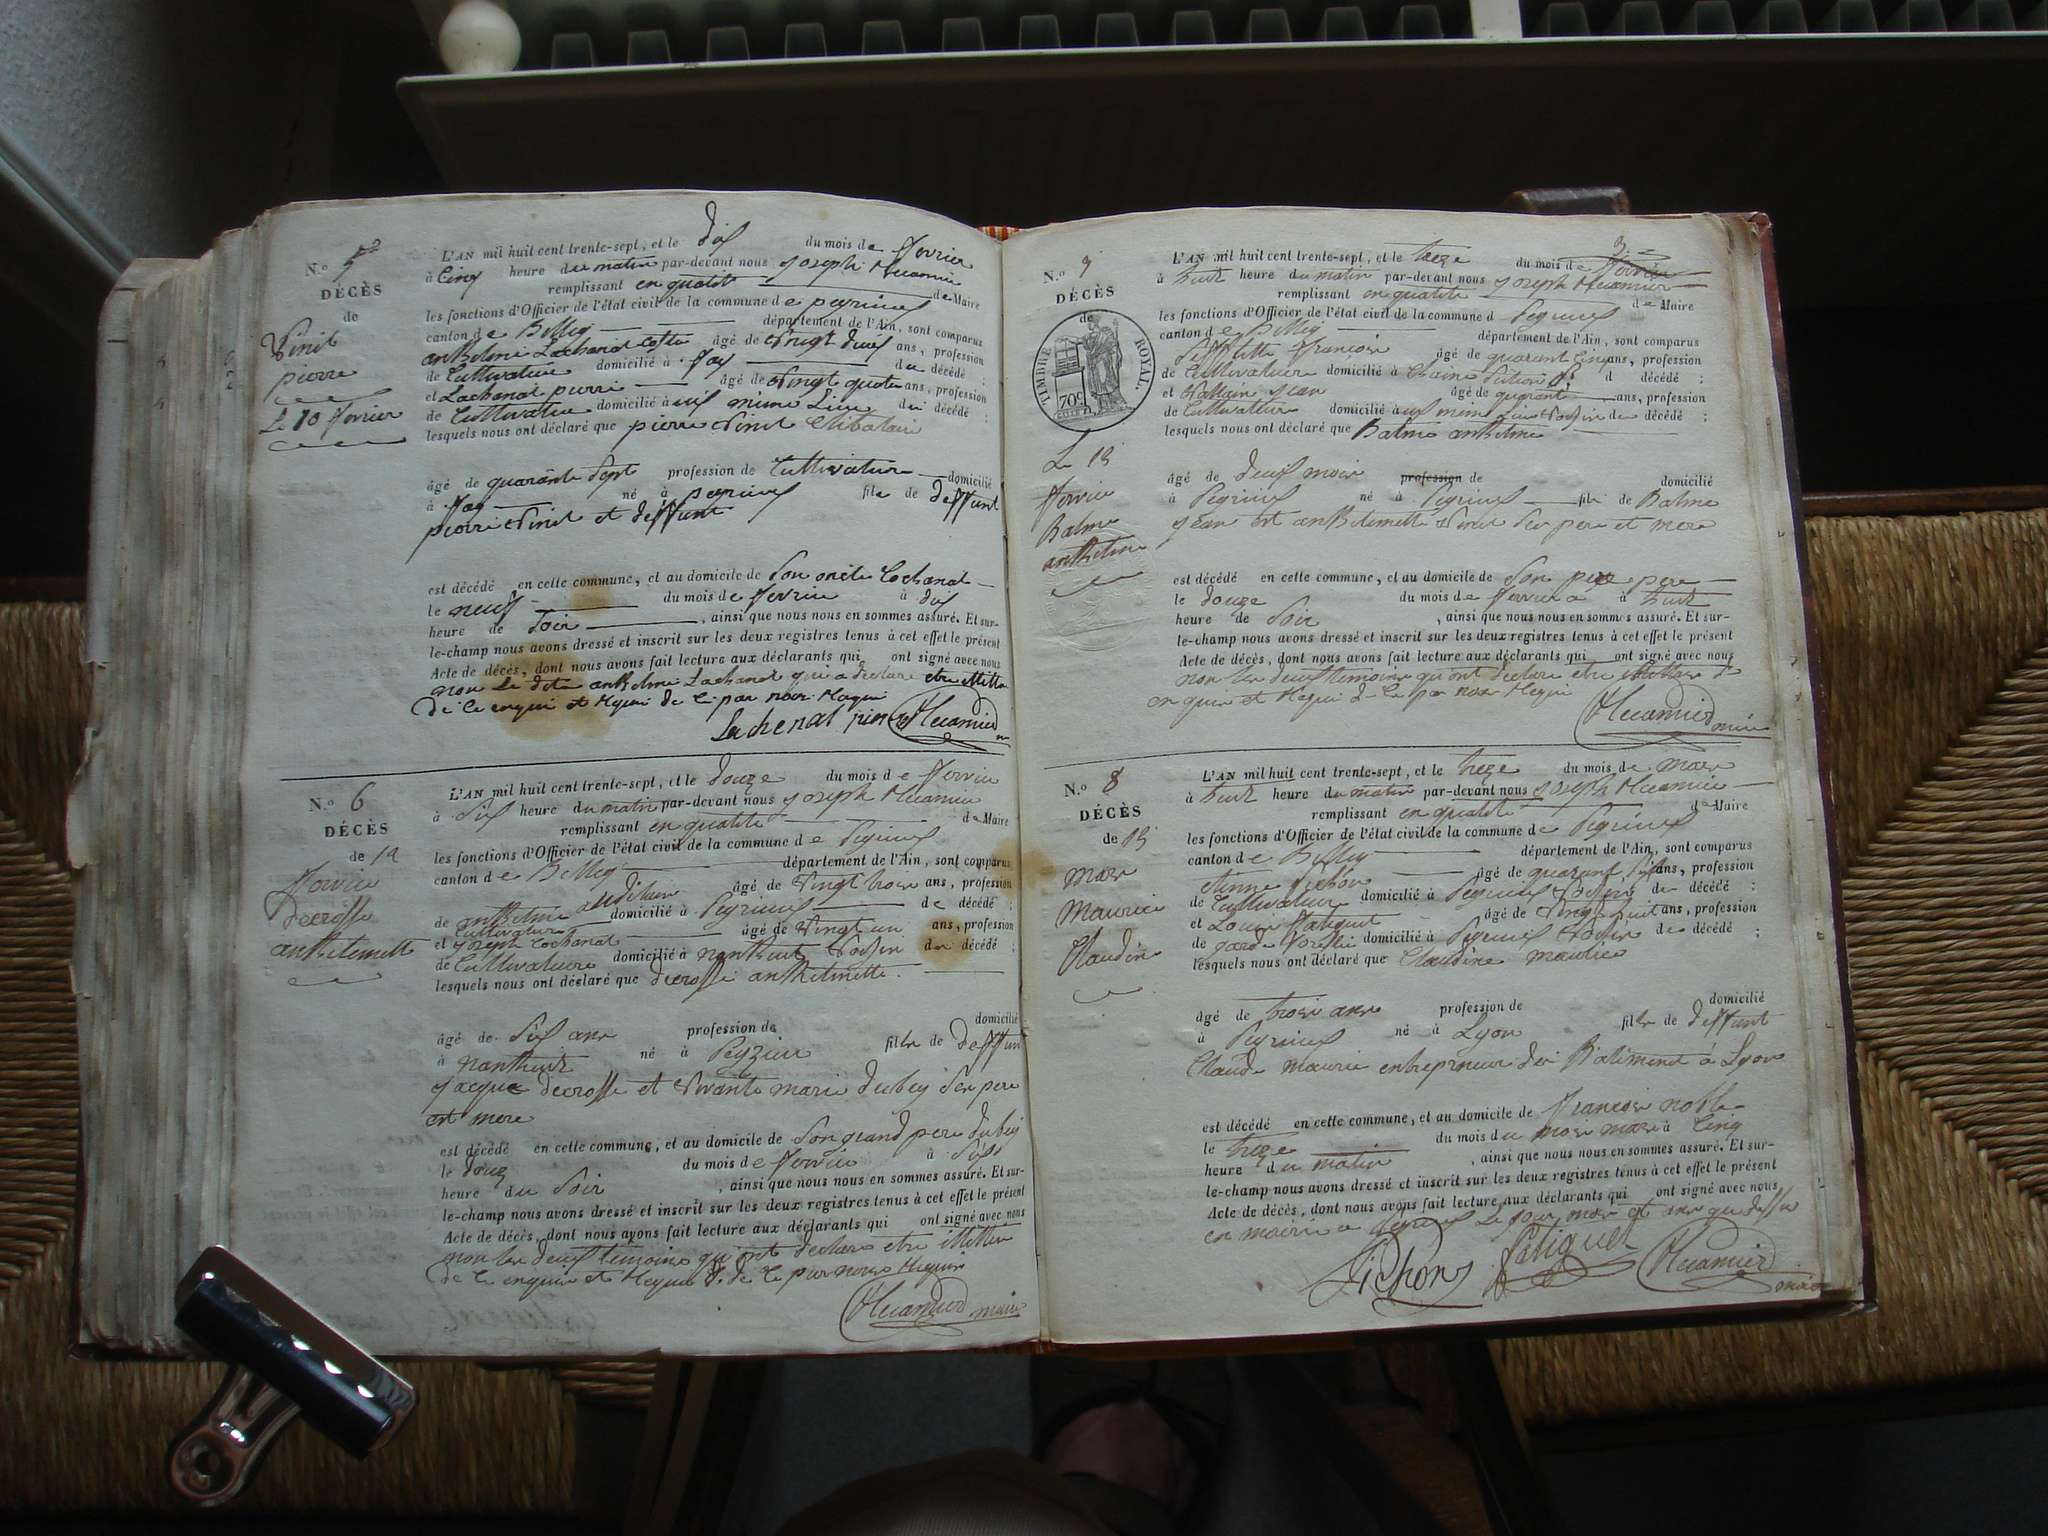 N.o 5
DÉCÈS
de
Vinit
pierre
Le 10 fevrier
L'AN mil huit cent trente-sept, et le dix du mois de fevrier
à cinq heure du matin par-devant nous joseph
remplissant en qualité de Maire
les fonctions d'Officier de l'état civil de la commune de peyrieux
canton de Belley département de l'Ain, sont comparus
anthelme Lachanat âgé de vingt deux ans, profession
de Cultivateur domicilié à du décédé ;
et Lachanat pierre âgé de vingt quatre ans, profession
de Cultivateur domicilié à mime Lieu du décédé ;
lesquels nous ont déclaré que pierre vinit Clibataire
âgé de quarante Sept profession de Cultivateur domicilié
à né à peyrieux fils de deffunt
pierre vinit et deffunt
est décédé en cette commune, et au domicile de Son oncle Lachanat
le neuf du mois de fevrier à dix
heure de Soir, ainsi que nous nous en sommes assuré. Et sur-
le-champ nous avons dressé et inscrit sur les deux registres tenus à cet effet le présent
Acte de décès, dont nous avons fait lecture aux déclarants qui ont signé avec nous
non Le dit anthelme Lachanat qui a declare etre
de ce enquis et Requi de ce par nous
Lachenal
N.o 6
DÉCÈS
de 12
fevrier
decrosse
anthelmette
L'AN mil huit cent trente-sept, et le douze du mois de fevrier
à Six heure du matin par-devant nous joseph
remplissant en qualité de Maire
les fonctions d'Officier de l'état civil de la commune de Peyrieux
canton de Belley département de l'Ain, sont comparus
anthelme âgé de vingt trois ans, profession
de Cultivateur domicilié à Peyrieux de décédé ;
et joseph Cochanat âgé de vingt un ans, profession
de Cultivateur domicilié à nanthuit voisin du décédé ;
lesquels nous ont déclaré que decrosse anthelmette.
âgé de Six ans profession de domicilié
à nanthuit né à Peyzieu fille de deffunt
jacque decrosse et vivante marie dubey Ses pere
et mere
est décédé en cette commune, et au domicile de Son grand pere dubey
le douz du mois de fevrier à Six
heure du Soir, ainsi que nous nous en sommes assuré. Et sur-
le-champ nous avons dressé et inscrit sur les deux registres tenus à cet effet le présent
Acte de décès, dont nous avons fait lecture aux déclarants qui ont signé avec nous
non les deux temoins qui ont declare etre
de ce enquis et Requi de ce par nous
maire
3
N.o 7
DÉCÈS
de
TIMBRE ROYAL.
70c
Le 13
fevrier
Balme
anthelme
L'AN mil huit cent trente-sept, et le treze du mois de fevrier
à huit heure du matin par-devant nous joseph
remplissant en qualité de Maire
les fonctions d'Officier de l'état civil de la commune d Peyrieux
canton de Belley département de l'Ain, sont comparus
françois âgé de quarant cinq ans, profession
de Cultivateur domicilié à d décédé ;
et jean âgé de quarant ans, profession
de Cultivateur domicilié à mime Lieu voisin du décédé ;
lesquels nous ont déclaré que Balme anthelme
âgé de deux mois profession de domicilié
à Peyrieux né à Peyrieux fils de Balme
jean et anthelmette vinit Ses pere et mere
est décédé en cette commune, et au domicile de Son pere
le douze du mois de fevrier à huit
heure de Soir, ainsi que nous nous en sommes assuré. Et sur-
le-champ nous avons dressé et inscrit sur les deux registres tenus à cet effet le présent
Acte de décès, dont nous avons fait lecture aux déclarants qui ont signé avec nous
non les deux temoins qu ont declare etre
enquis et Requi d ce par nous
maire
N.o 8
DÉCÈS
de 13
mars
maurice
Claudine
L'AN mil huit cent trente-sept, et le treze du mois de mars
à huit heure du matin par-devant nous joseph
remplissant en qualité de Maire
les fonctions d'Officier de l'état civil de la commune de Peyrieux
canton de Belley département de l'Ain, sont comparus
etienne âgé de quarant Sept ans, profession
de Cultivateur domicilié à Peyrieux voisin du décédé ;
et Louis Patiguet âgé de vingt huit ans, profession
de garde forestie domicilié à Peyrieux voisin de décédé ;
lesquels nous ont déclaré que Claudine maurice
âgé de trois ans profession de domicilié
à Peyrieux né à Lyon fille de deffunt
Claude maurice entrepreneur de Batiment à Lyon
est décédé en cette commune, et au domicile de francois noble
le treze du mois du mois mars à cinq
heure du matin, ainsi que nous nous en sommes assuré. Et sur-
le-champ nous avons dressé et inscrit sur les deux registres tenus à cet effet le présent
Acte de décès, dont nous avons fait lecture aux déclarants qui ont signé avec nous
en mairie a Peyrieux Le jour, mois et an que dessu
Patiguet
maire